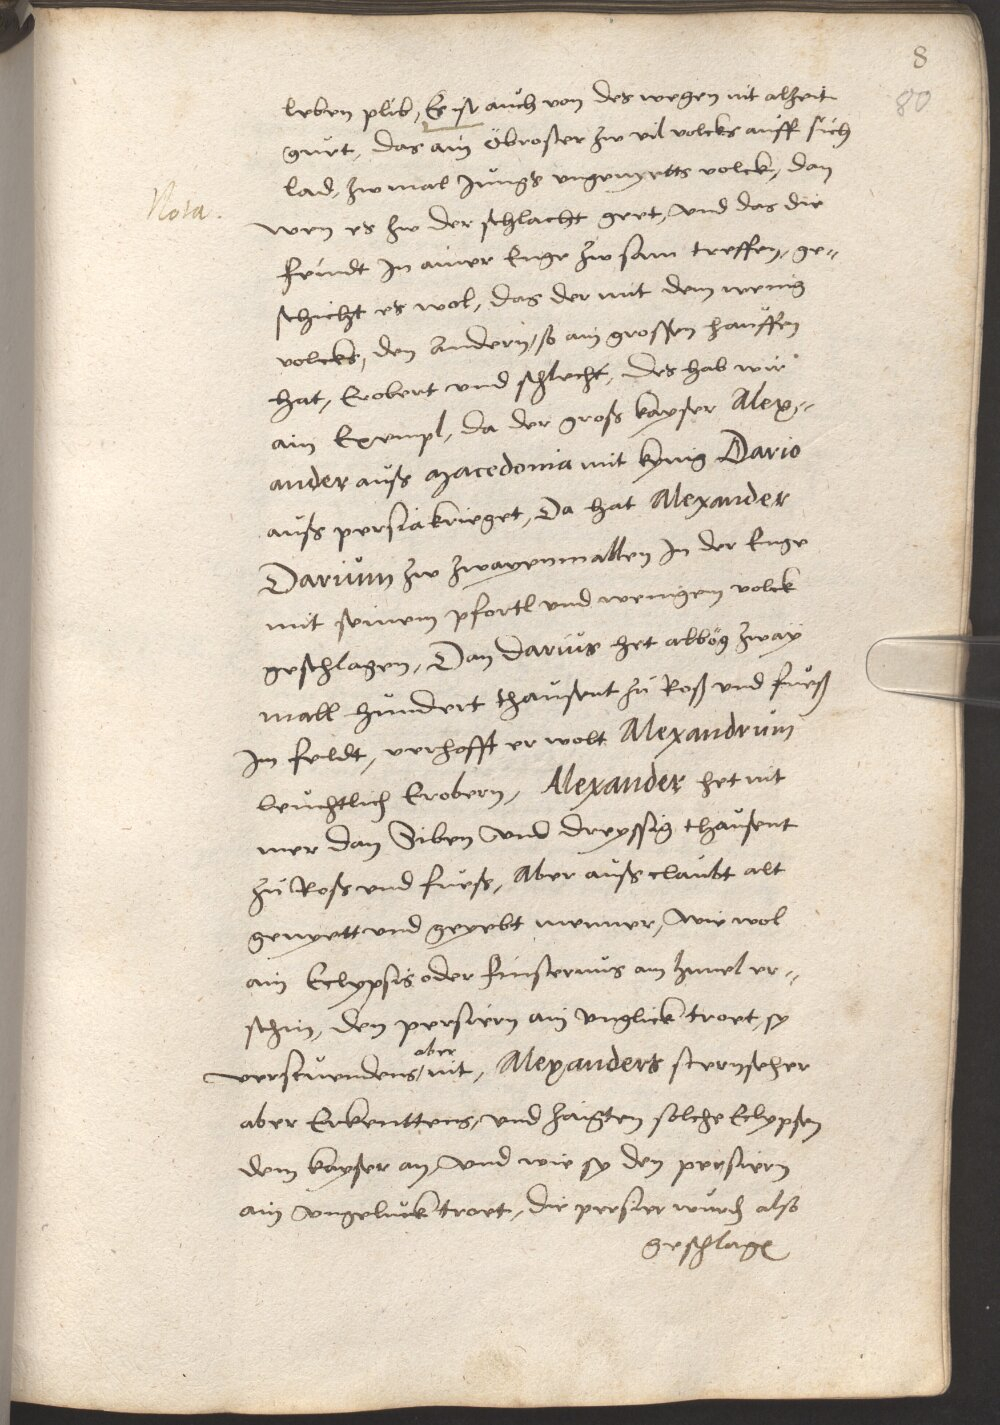 8
80
leben plib, Es ist auch von des wegen nit alzeit
guet, das ain Öbroster zw vil volcks auff sich
lad, zwmal Jungs ungenyetts volck, dan
Nota.
wen es zw der schlacht geet, und das die
feindt In ainer Enge zw sam treffen, ge-
schicht es wol, das der mit dem wenig
volcks, den Andern, so ain grossen hauffen
hat, Erobert und schlecht, des hab wir
ain Exempl, da der groß kayser Alex-
ander auß Macedonia mit kynig Dario
auß persia krieget, Da hat Alexander
Darium zw zwayenmallen In der Enge
mit seinem pfortl und wenigem volck
geschlagen, Dan Darius het albög zway
mall hundert thausent zu Roß und fueß
Im feldt, verhofft er wolt Alexandrum
leuchtlich Erobern, Alexander het nit
mer dan Siben und dreyssig thausent
zu Roß und fueß, Aber auß claubt alt
genyett und geyebt menner, wie wol
ain Eclypsis oder finsternus am himel er-
schin, den persiern ain unglick troet, sy
verstuendens aber nit, Alexanders sternseher
aber Erkenttens, und zaigten solche Eclypsen
dem kayser an, und wie sy den persiern
ain ungeluck troet, die persier wurden also
geschlagen